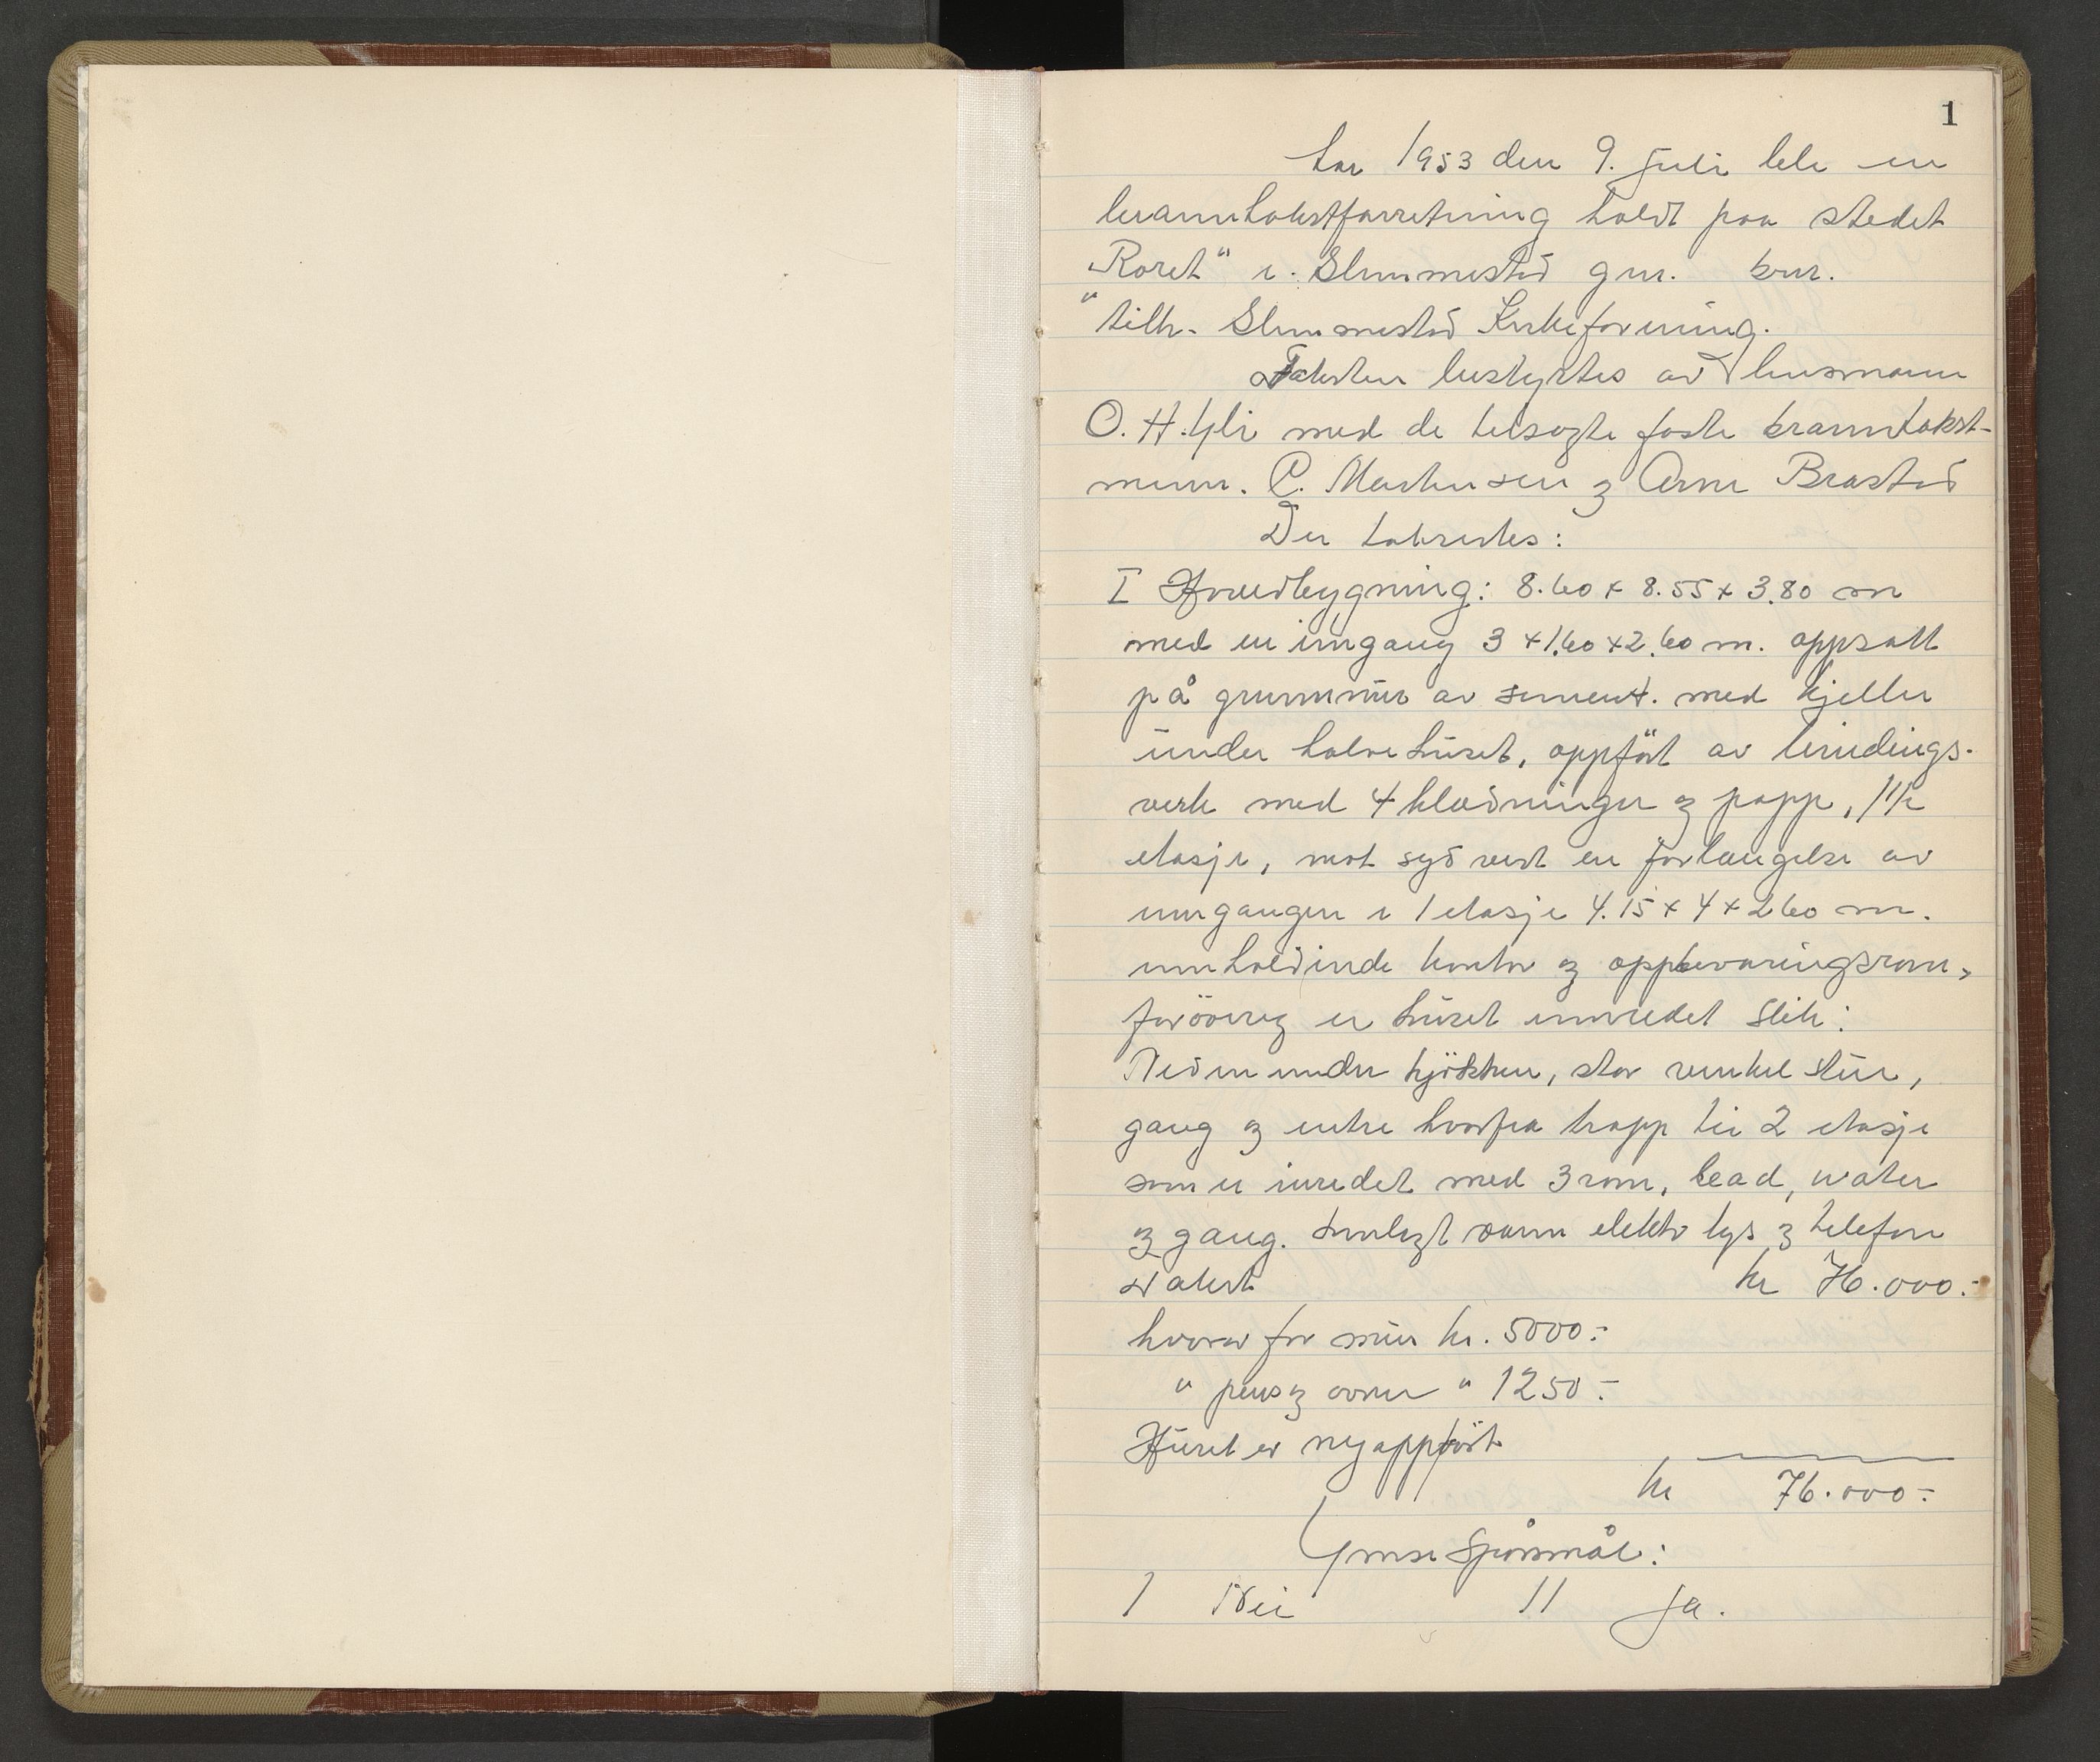 1
Aar 1953 den 9. juli ble en
branntakstforretning holdt paa stedet
"Roret" i Slemmestad gnr. bnr.
tilh. Slemmestad Kirkeforening.
Taksten bestyrtes av lensmann
O. H. Yli med de tilsagte faste branntakst-
menn. P. Martinsen og Arne Brastad
Der taksertes:
I Hovedbygning: 8.60 x 8.55 x 3.80 m
med en inngang 3 x 1.60 x 2.60 m. oppsatt
på grunnmur av sement. med kjeller
under halve huset, oppført av bindings-
verk med 4 klædninger og papp, 1 1/2
etasje, mot syd vest en forlængelse av
inngangen i 1 etasje 4.15 x 4 x 2.60 m.
innholdende kontor og oppbevaringsrom,
forövrig er huset innredet slik:
Nedenunder kjökken, stor vinkel stue,
gang og entre hvorfra trapp til 2 etasje
som er inredet med 3 rom, bad, water
og gang. Innlagt vann elektr lys og telefon
Takst kr 76.000.-
hvorav for mur kr. 5000.-
" peis og ovner " 1250.-
Huset er nyoppfört
kr 76.000.-
Ymse Spørsmål:
1 Nei 11 ja.